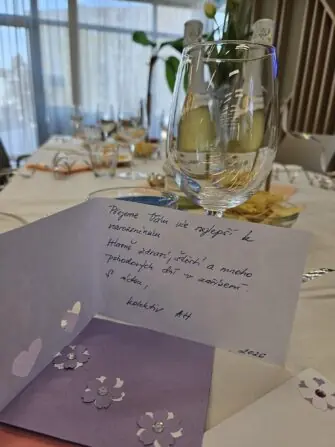 Přejeme Vám vše nejlepší k
narozeninám
Hlavně zdraví, štěstí a mnoho
pohodových dní v zařízení.
S úctou,
kolektiv AH
2026